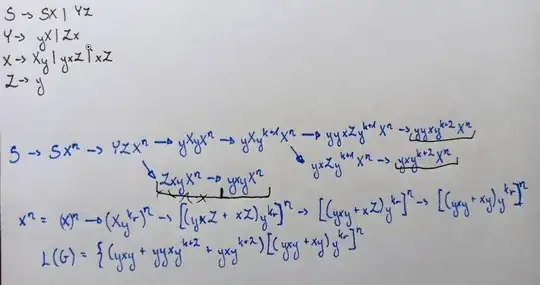 S → SX | YZ
Y → yX | Zx
X → Xy | yxZ | xZ
Z → y
S → SXⁿ → YZXⁿ → yXyXⁿ → yXyᵏ⁺¹Xⁿ → yyxZyᵏ⁺¹Xⁿ → yyxyᵏ⁺²Xⁿ
ZxyXⁿ → yxyXⁿ yxZyᵏ⁺¹Xⁿ → yxyᵏ⁺²Xⁿ
Xⁿ = (X)ⁿ → (Xyᵏʳ)ⁿ → [(yxZ + xZ)yᵏʳ]ⁿ → [(yxy + xZ)yᵏʳ]ⁿ → [(yxy + xy)yᵏʳ]ⁿ
L(G) = { (yxy + yyxyᵏ⁺² + yxyᵏ⁺²) [(yxy + xy)yᵏʳ]ⁿ